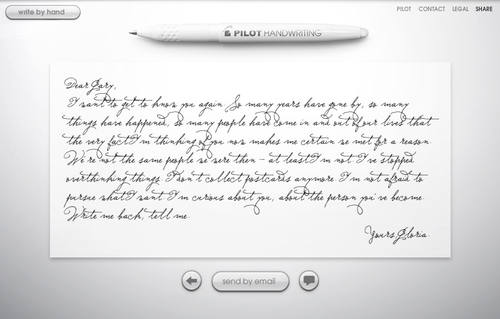 write by hand
PILOT CONTACT LEGAL SHARE
PILOT HANDWRITING
Dear Gary,
I want to get to know you again. So many years have gone by, so many
things have happened, so many people have come in and out of our lives that
the very fact I'm thinking of you now makes me certain we met for a reason.
We're not the same people we were then - at least I'm not. I've stopped
overthinking things. I don't collect postcards anymore. I'm not afraid to
pursue what I want. I'm curious about you, about the person you've become.
Write me back, tell me.
Yours, Gloria
send by email